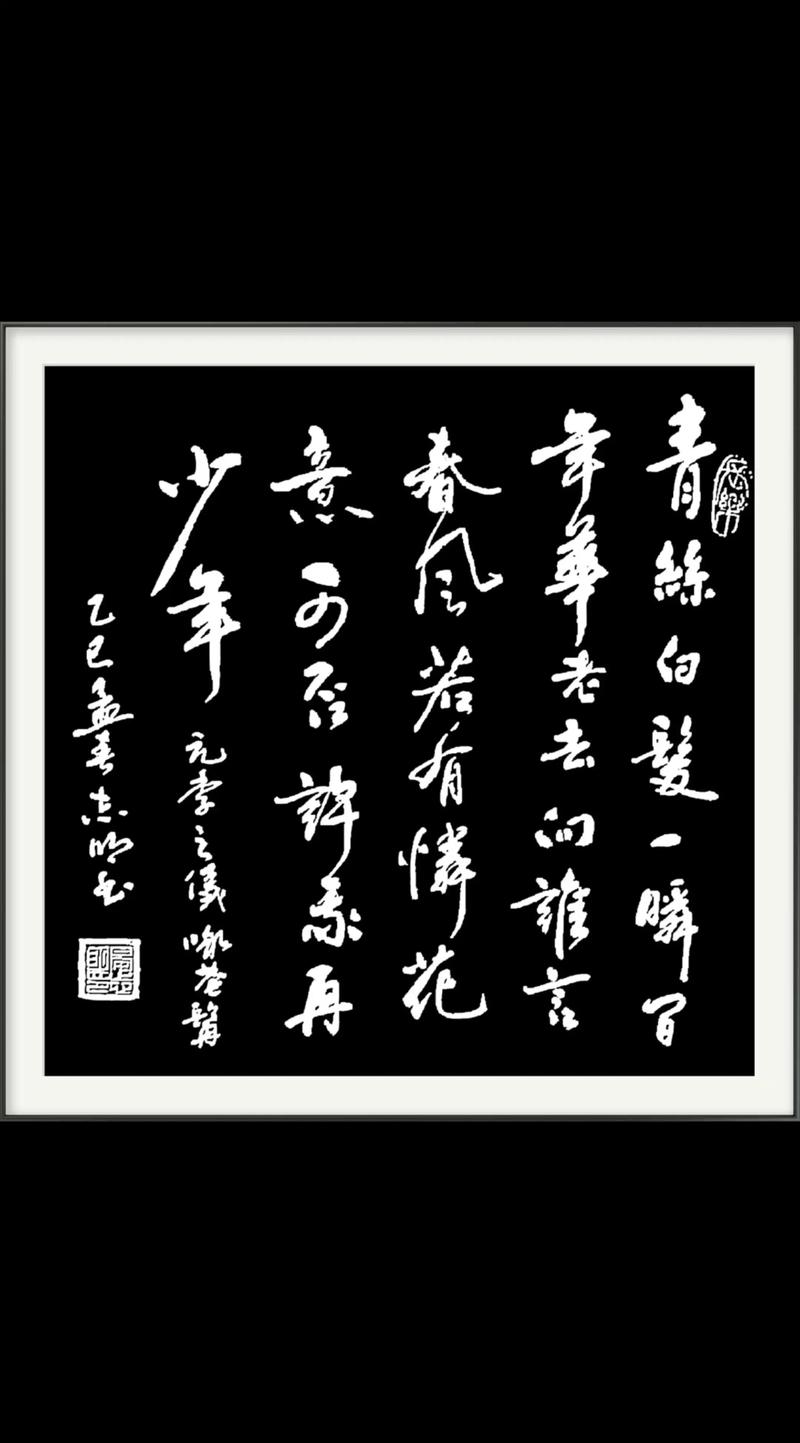 青絲白髮一瞬間
年華老去向誰言
春風若有憐花
意可否許我再
少年 元李之儀咏蒼髯
乙巳孟春志明书